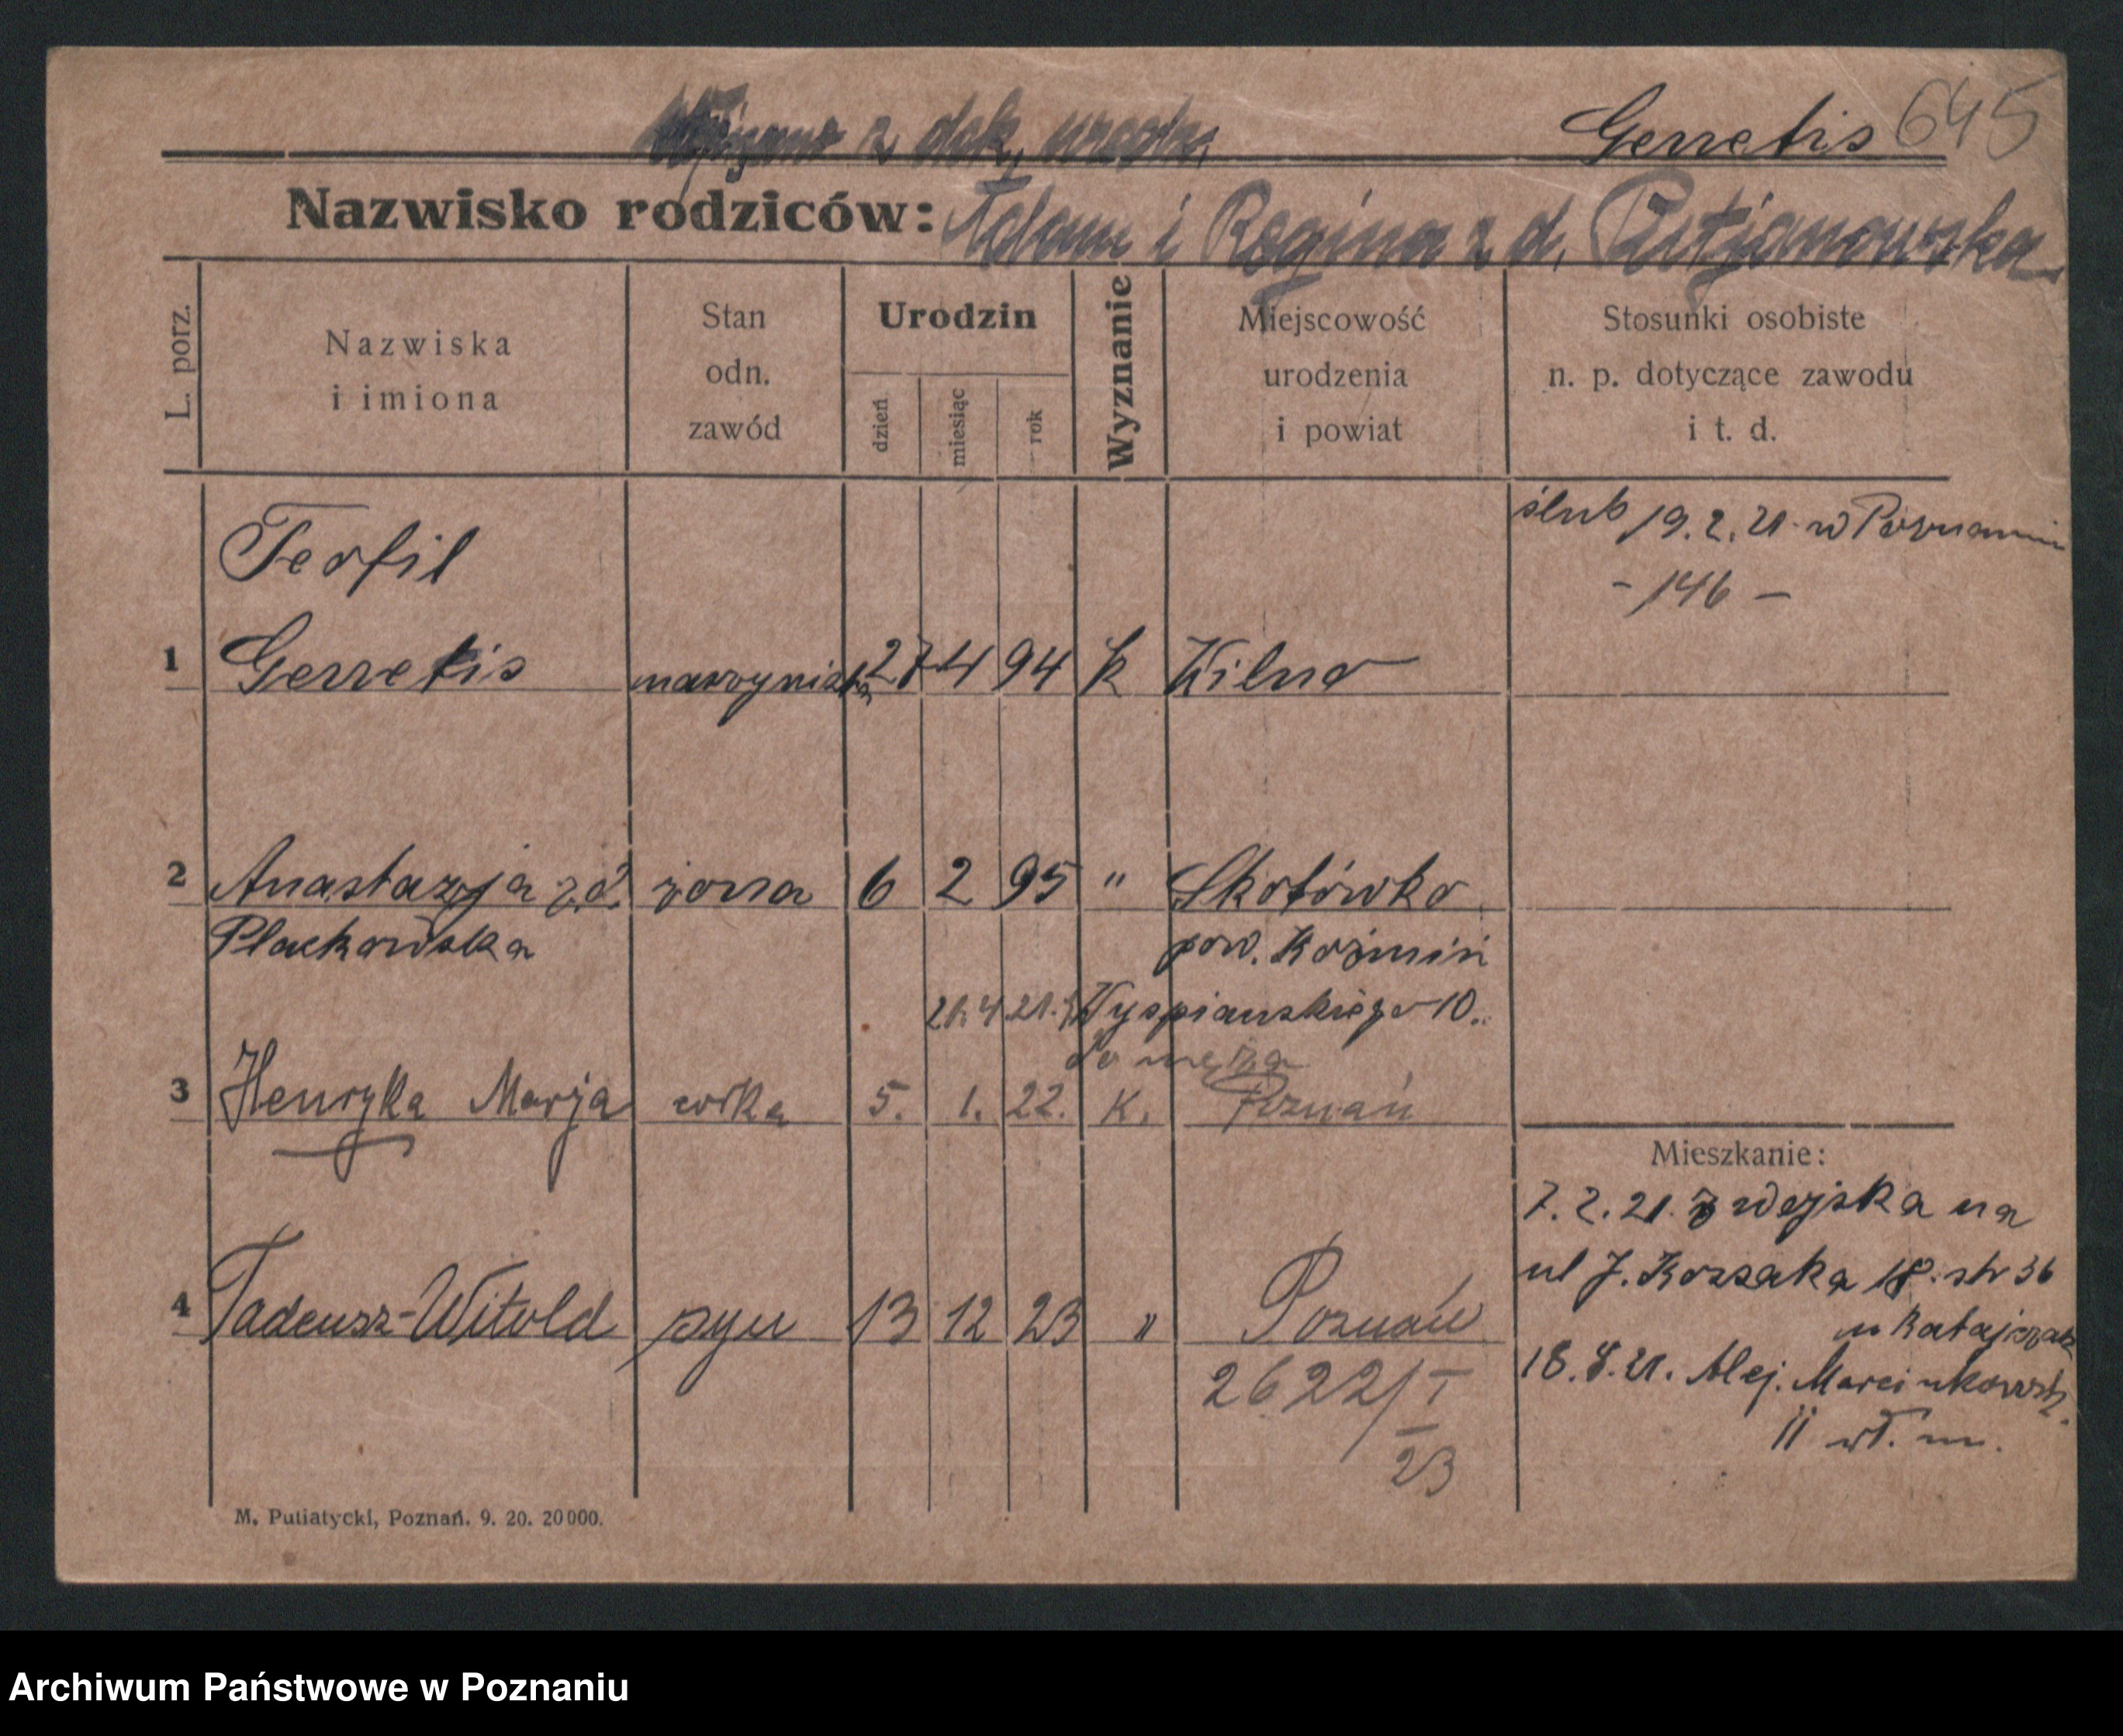 z dok. urodz.
Gerretis 645
Nazwisko rodziców: Adam i Regina z d.
L. porz.
Nazwiska
i imiona
Stan
odn.
zawód
Urodzin
dzień
miesiąc
rok
Wyznanie
Miejscowość
urodzenia
i powiat
Stosunki osobiste
n. p. dotyczące zawodu
i t. d.
ślub 19.2.21. w Poznaniu
- 146 -
Teofil
1 Gerretis 27 4 94 k Wilno
2 Anastazja z d. żona 6 2 95 " Skotówko
Plackowska pow. Koźmin
21.4.21. Wyspiańskiego 10.
do męża
3 Henryka Marja córka 5. 1. 22. K. Poznań
Mieszkanie:
7.2.21. z wojska na
ul J. Kossaka 18. str 36
u Ratajczak
4 Tadeusz-Witold syn 13 12 23 " Poznań
2622/I
23
18.8.21. Alej. Marcinkowsk.
11 wł. m.
M. Putiatycki, Poznań. 9. 20. 20000.
Archiwum Państwowe w Poznaniu